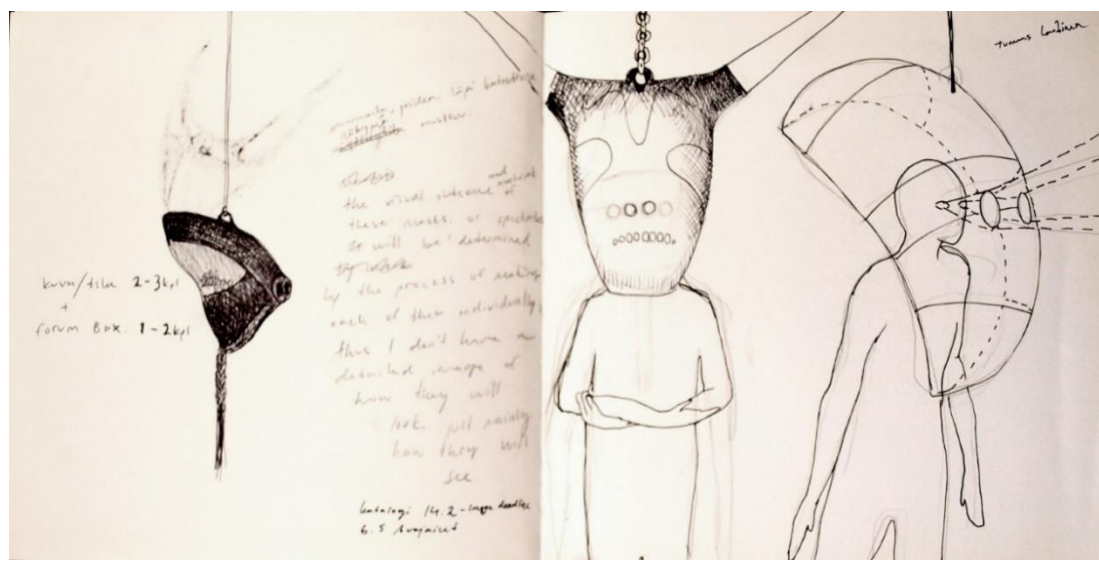 kuva/tila 2-3kpl
+
Forum Box. 1-2kpl
joiden läpi katsottuna
the visual outcome of
these masks or spectacles
will be determined
by the process of making
each of them individually,
thus I don't have a
detailed image of
how they will
look, just mainly
how they will
see
katalogi 14.2 - image deadline
6.5 Avajaiset